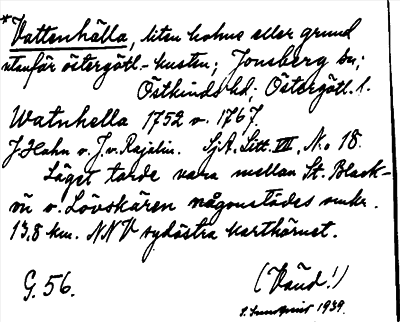 *Vattenhälla, liten holme eller grund
utanför östergötl. kusten; Jonsberg sn;
Östkinds hd; Östergötl. l.
Watnhella 1752 o. 1767.
J. Hahn o. J. v. Rajalin. SjA. Litt. VII, No 18.
Läget torde vara mellan St. Black-
n o. Lövskären någonstädes omkr.
13,8 km. NNV sydöstra karthörnet.
G. 56.
(Vänd!)
1939.